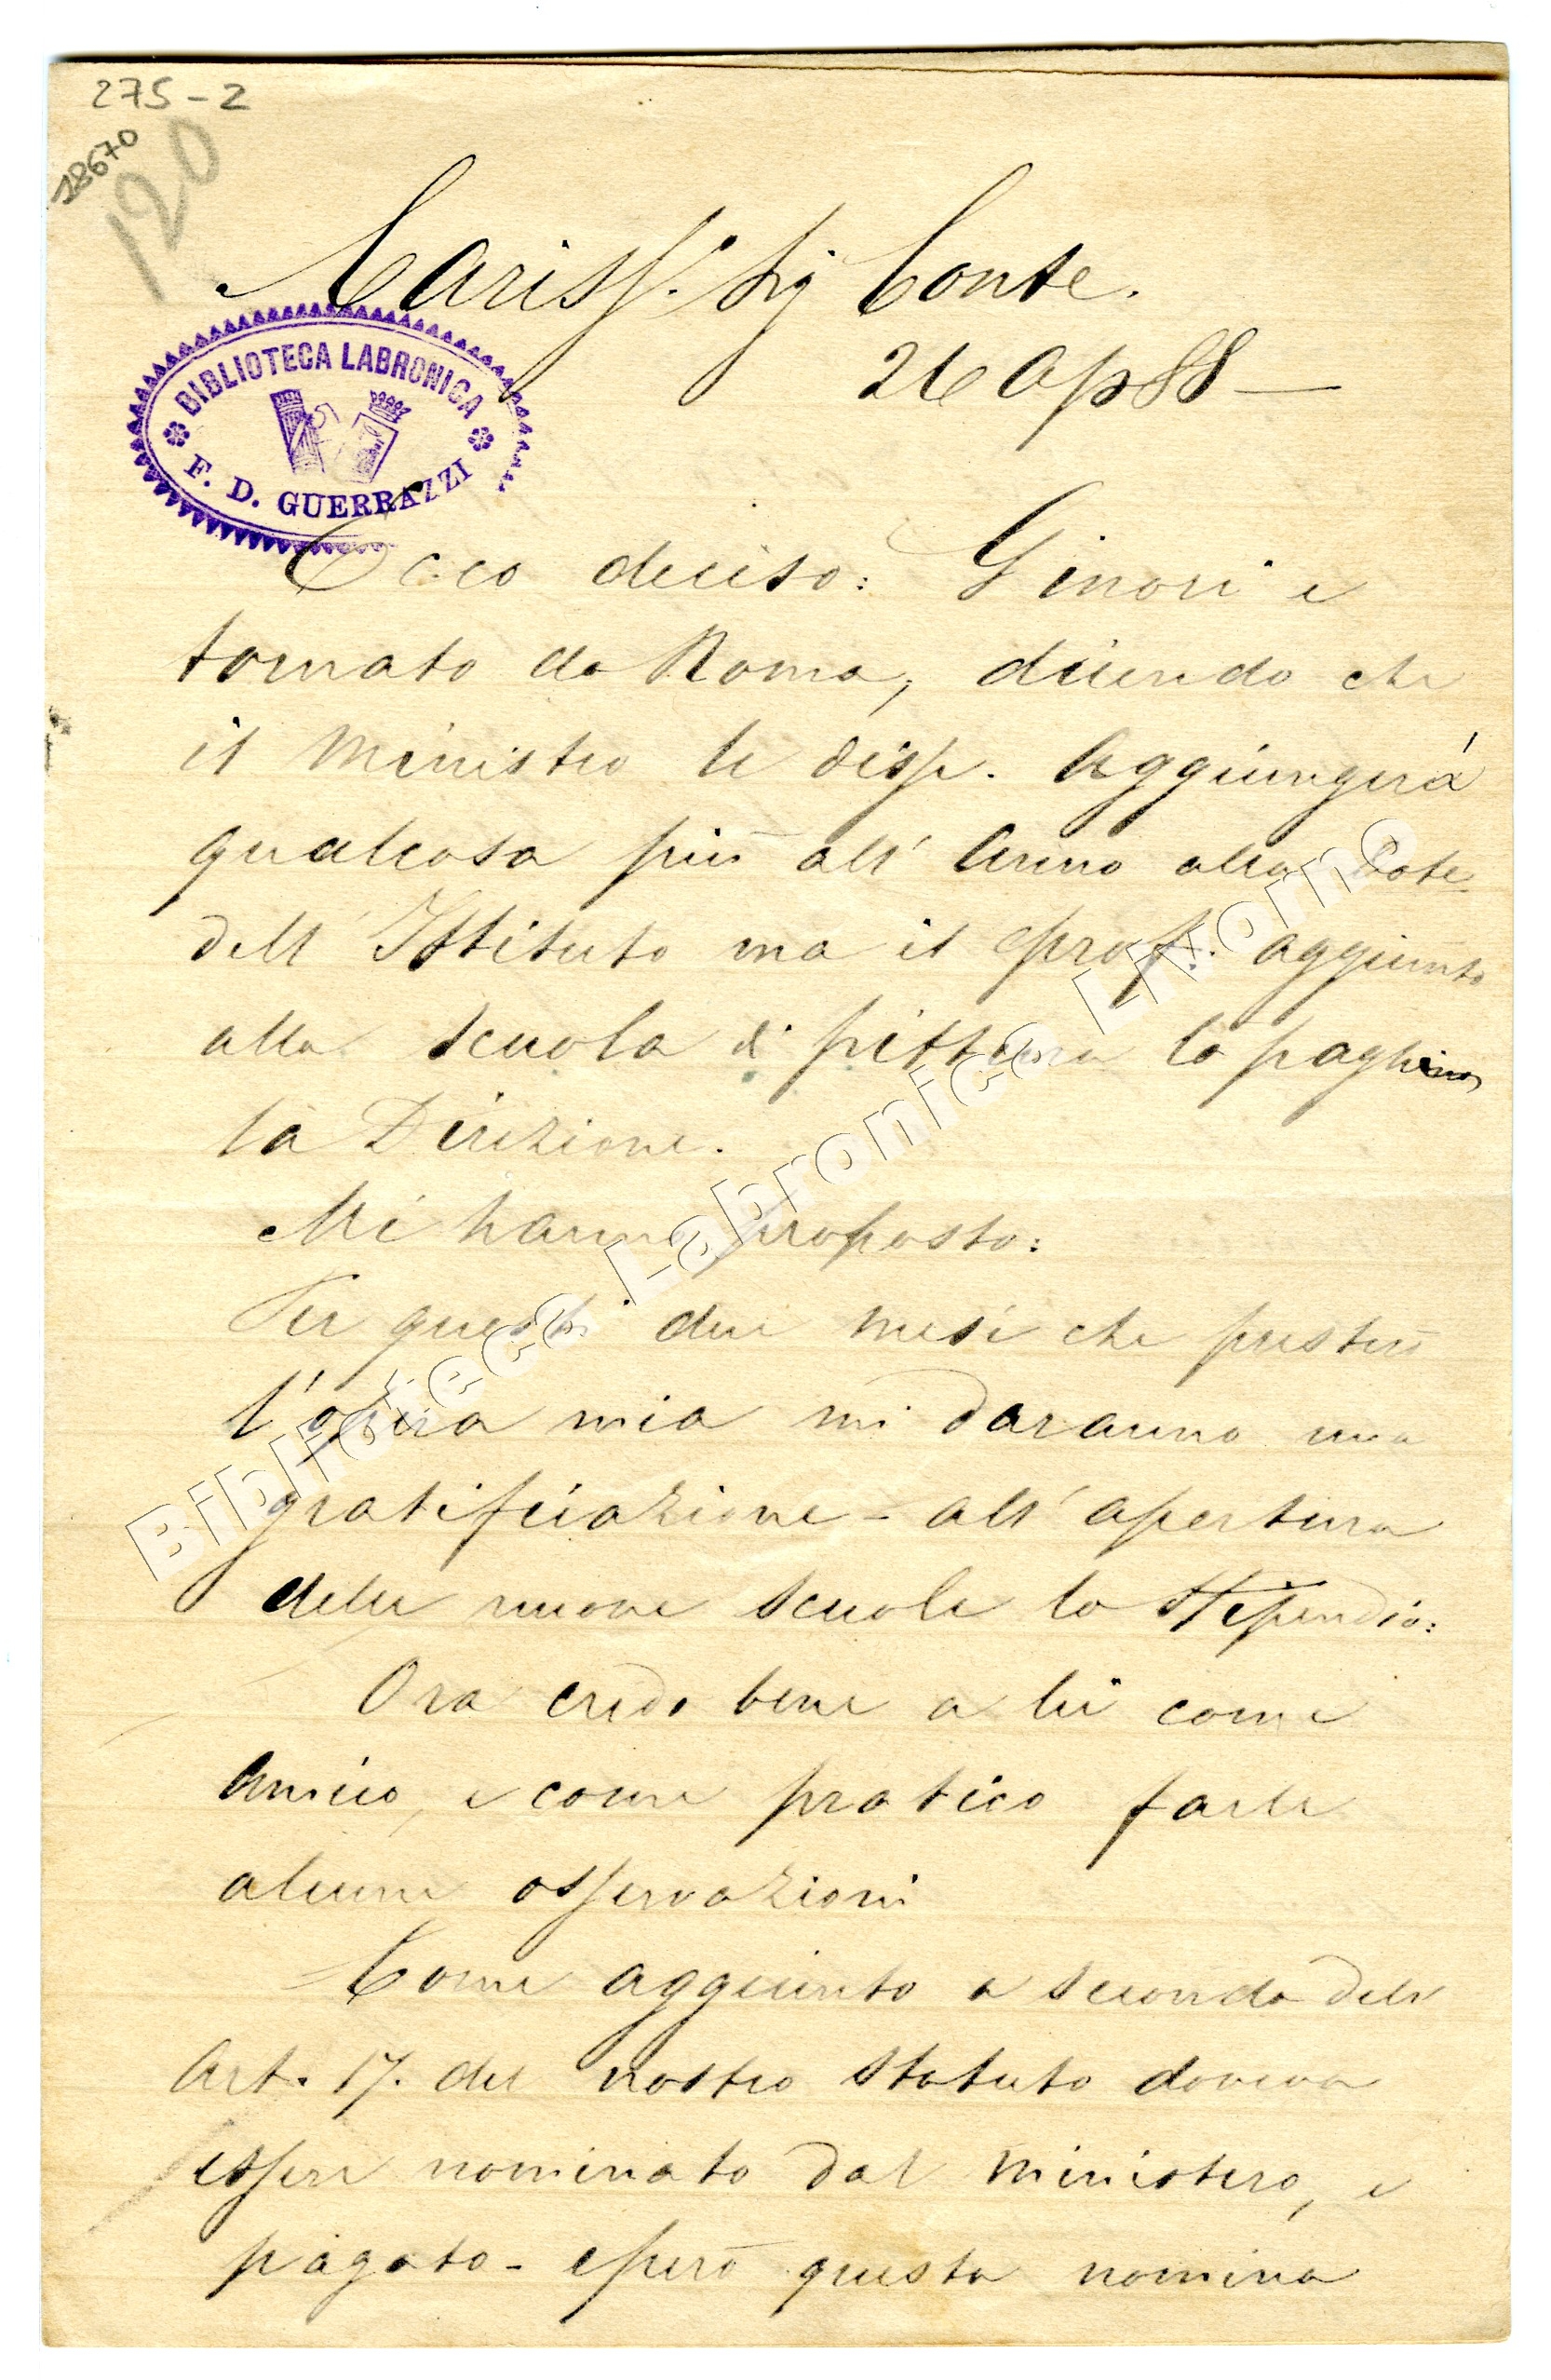 275-2
28670
120
Cariss.º Sig Conte.
26 Ap 88 —
BIBLIOTECA LABRONICA
F. D. GUERRAZZI
Ecco deciso: Ginori e
tornato da Roma, dicendo che
il Ministro le disp. Aggiungerà
qualcosa più all' Anno alla Dote
dell' Istituto ma il prof. aggiunto
alla scuola di pittura lo paghi
la Direzione.
Mi hanno proposto:
Per questi due mesi che presterò
l'opera mia mi daranno una
gratificazione - all' apertura
delle nuove scuole lo stipendio:
Ora credo bene a lei come
Amico, e come pratico farle
alcune osservazioni
Come aggiunto a seconda dell'
Art. 17. del nostro statuto doveva
essere nominato dal ministero, e
pagato - però questa nomina
Biblioteca Labronica Livorno